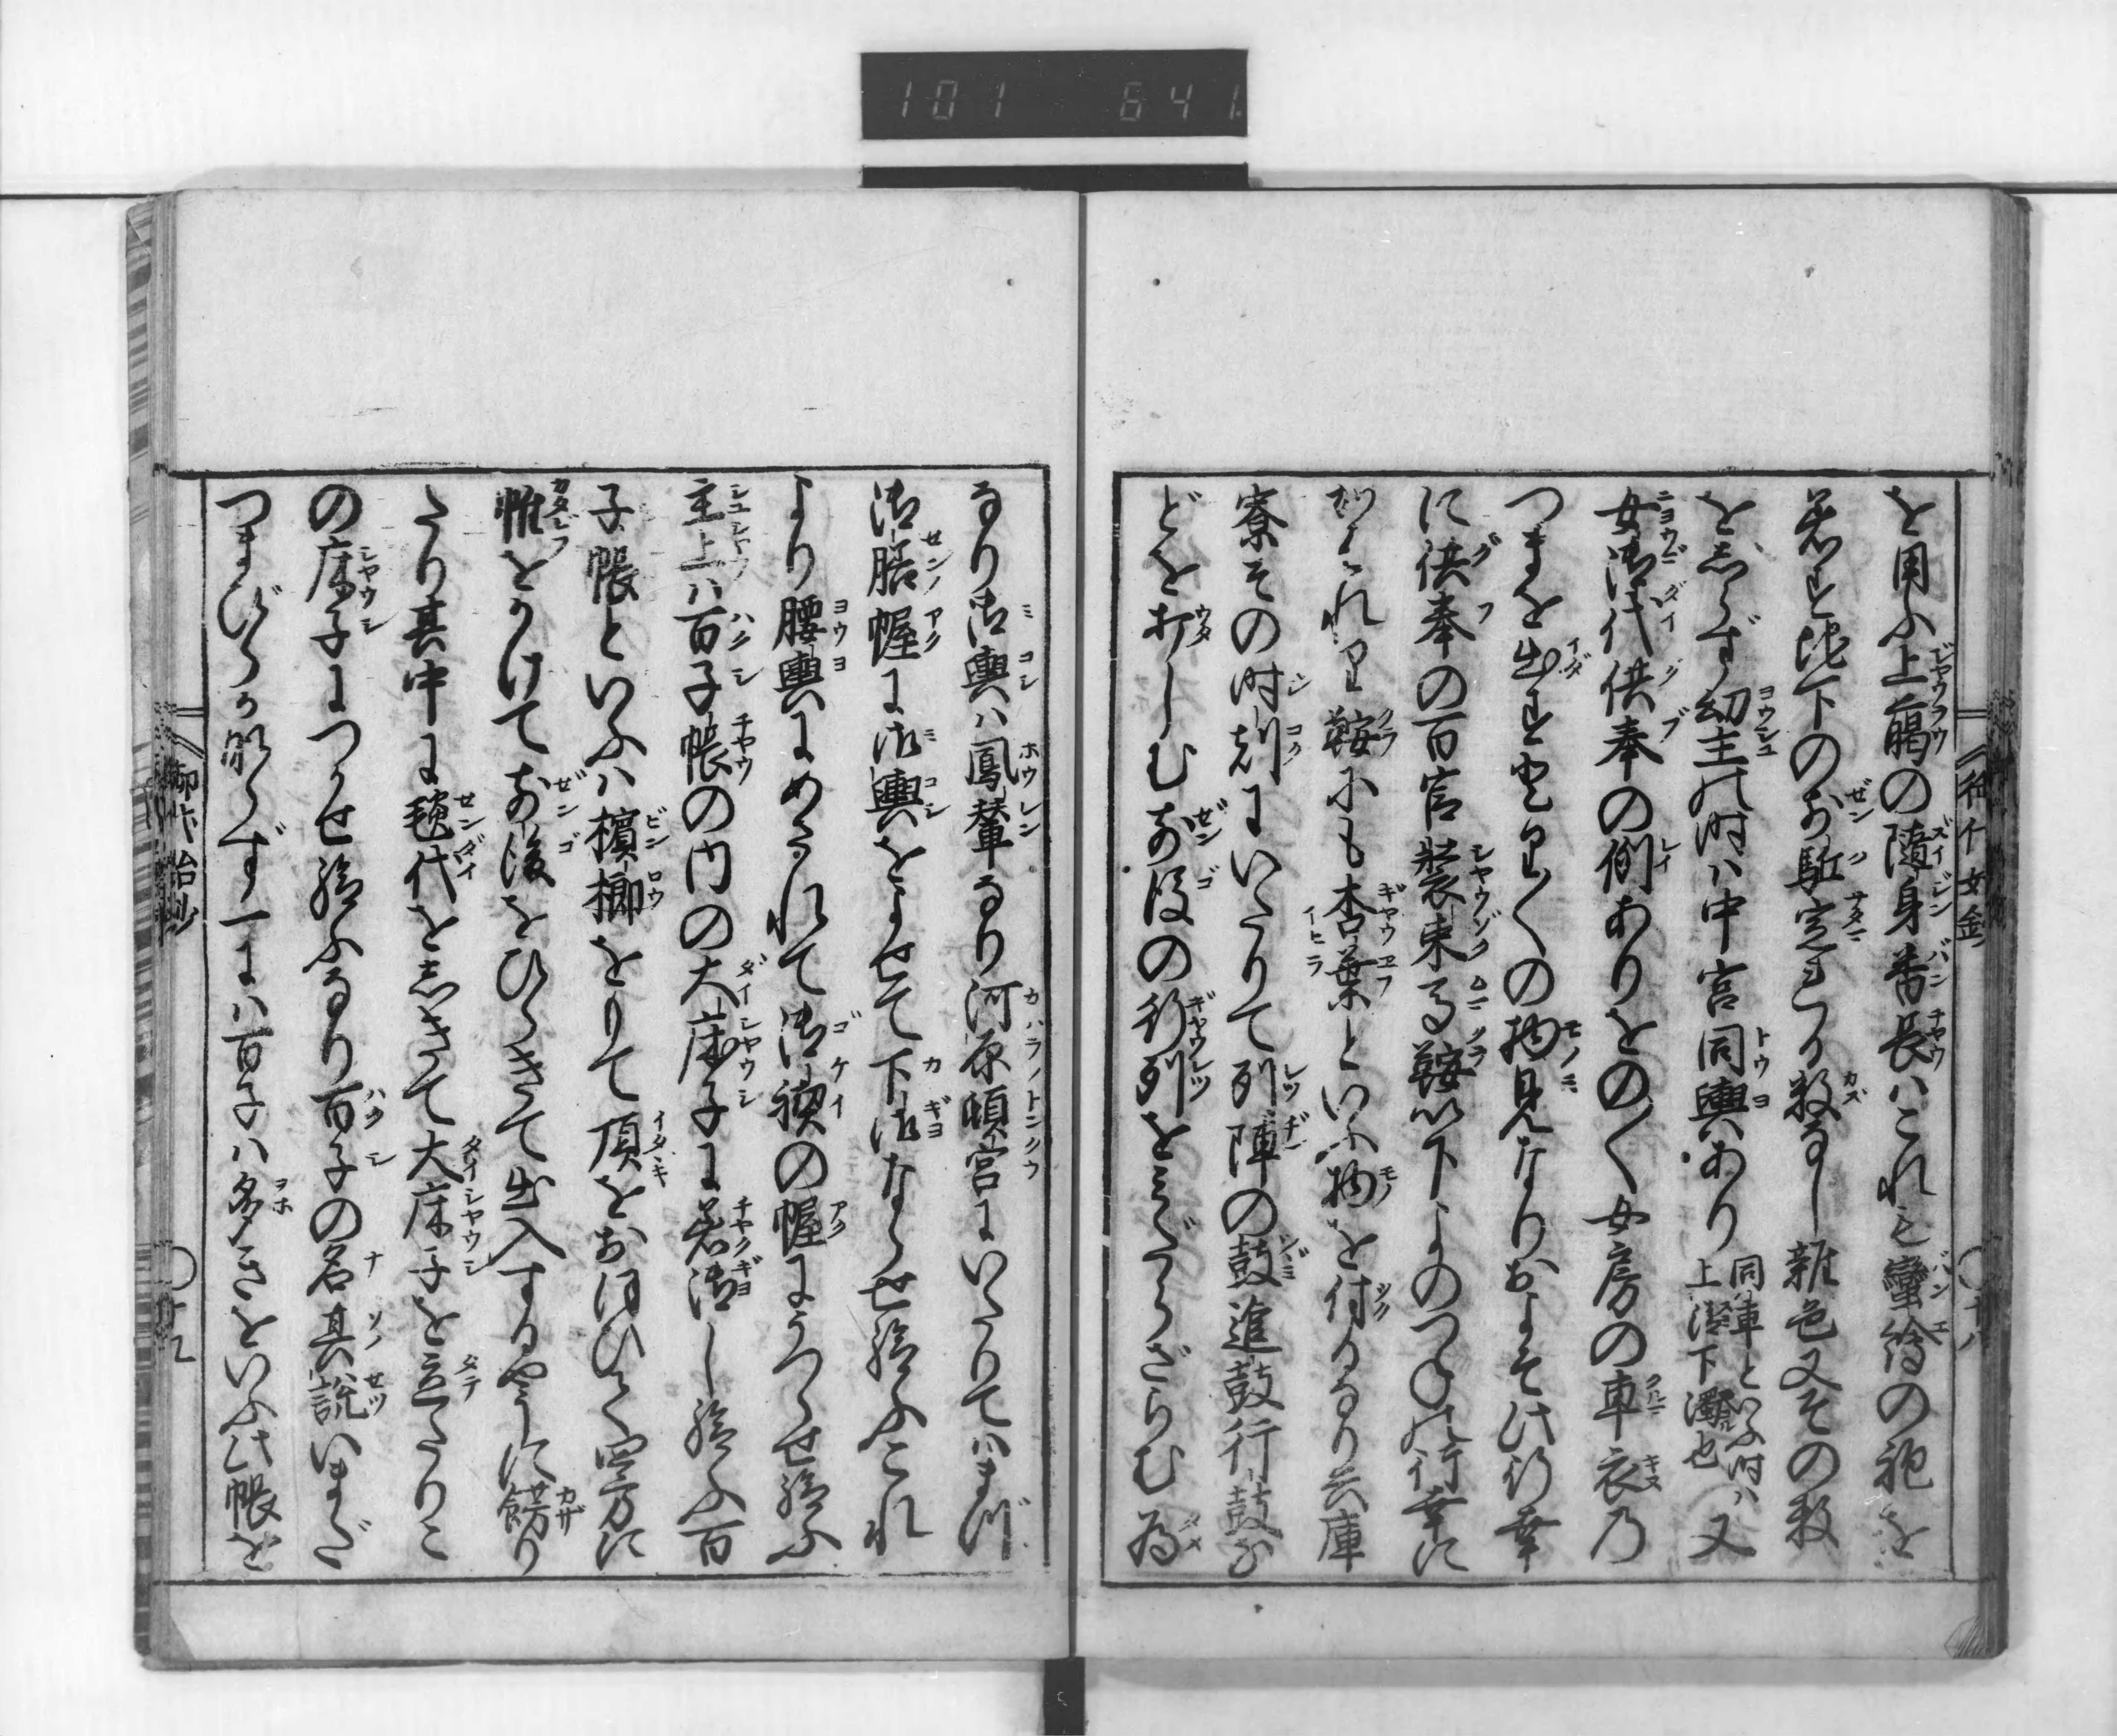 101 641
を用ふ上臈の随身番長ハこれも蠻繪の袍を
着す地下の前駈定れる数なし雑色又その数
をしらず幼主の時ハ中宮同輿あり同車といふ時ハ上濁下濁也又
女御代供奉の例ありをの〱女房の車衣乃
つまを出す色〱の物見なりおよそ此行幸
に供奉の百官装束馬鞍以下よのつねの行幸に
かはれり鞍にも杏葉といふ物を付るなり兵庫
寮その時刻にいたりて列陣の鼓進鼓行鼓な
どを打しむ前後の行列をみだらざらむ為
なり御輿ハ鳳輦なり河原頓宮にいたりてハまづ
御膳幄に御輿をよせて下御ならせ給ふこれ
より腰輿にめされて御禊の幄にうつらせ給ふ
主上ハ百子帳の内の大床子に着御し給ふ百
子帳といふハ檳榔をもて頂をおほひて四方に
帷をかけて前後をひらきて出入するやうに餝り
たり其中に毯代をしきて大床子を立たりこ
の床子につかせ給ふなり百子の名其説いまだ
つまびらかならず一にハ百子ハ多きをいふ此帳を